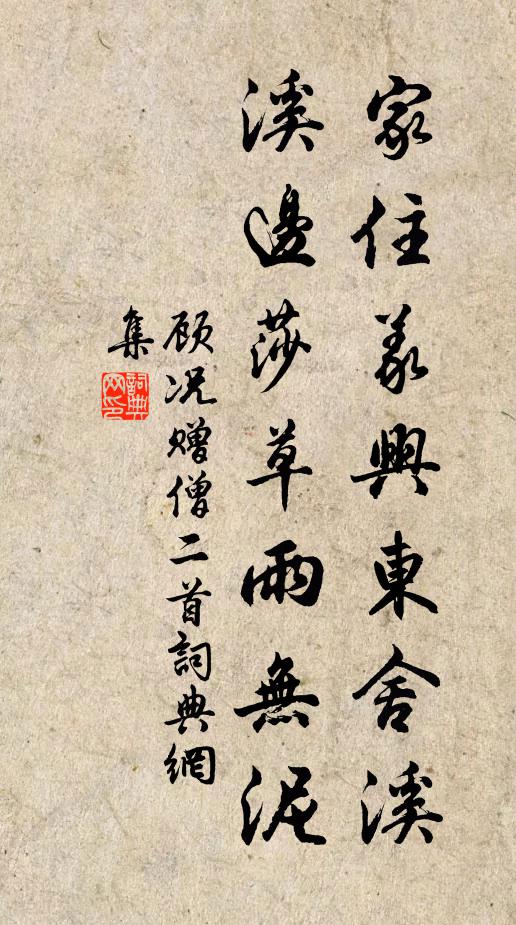 家住義興東舍溪
溪邊莎草雨無泥
顾况赠僧二首詞典網
集
詞典網印